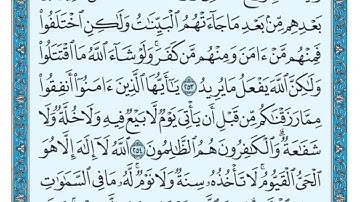 بَعْدِهِم مِّنۢ بَعْدِ مَا جَآءَتْهُمُ ٱلْبَيِّنَٰتُ وَلَٰكِنِ ٱخْتَلَفُوا۟
فَمِنْهُم مَّنْ ءَامَنَ وَمِنْهُم مَّن كَفَرَ ۚ وَلَوْ شَآءَ ٱللَّهُ مَا ٱقْتَتَلُوا۟
وَلَٰكِنَّ ٱللَّهَ يَفْعَلُ مَا يُرِيدُ ٢٥٣ يَٰٓأَيُّهَا ٱلَّذِينَ ءَامَنُوٓا۟ أَنفِقُوا۟
مِمَّا رَزَقْنَٰكُم مِّن قَبْلِ أَن يَأْتِىَ يَوْمٌ لَّا بَيْعٌ فِيهِ وَلَا خُلَّةٌ وَلَا
شَفَٰعَةٌ ۗ وَٱلْكَٰفِرُونَ هُمُ ٱلظَّٰلِمُونَ ٢٥٤ ٱللَّهُ لَآ إِلَٰهَ إِلَّا هُوَ
ٱلْحَىُّ ٱلْقَيُّومُ ۚ لَا تَأْخُذُهُۥ سِنَةٌ وَلَا نَوْمٌ ۚ لَّهُۥ مَا فِى ٱلسَّمَٰوَٰتِ